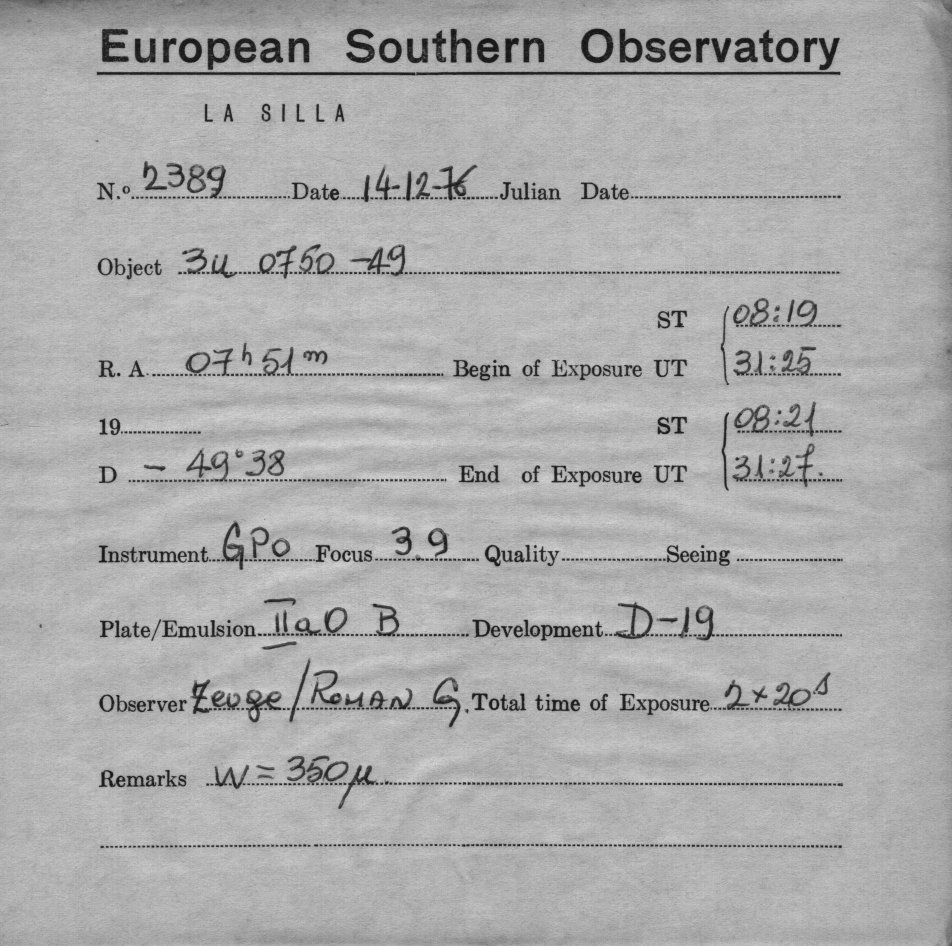 European Southern Observatory
LA SILLA
N.º 2389 Date 14-12-76 Julian Date
Object 3U 0750 -49
ST 08:19
R. A. 07h 51m Begin of Exposure UT 31:25
19 ST 08:21
D - 49°38 End of Exposure UT 31:27.
Instrument GPO Focus 3.9 Quality Seeing
Plate/Emulsion IIaO B Development D-19
Observer /ROMAN G. Total time of Exposure 2×20s
Remarks W = 350µ.